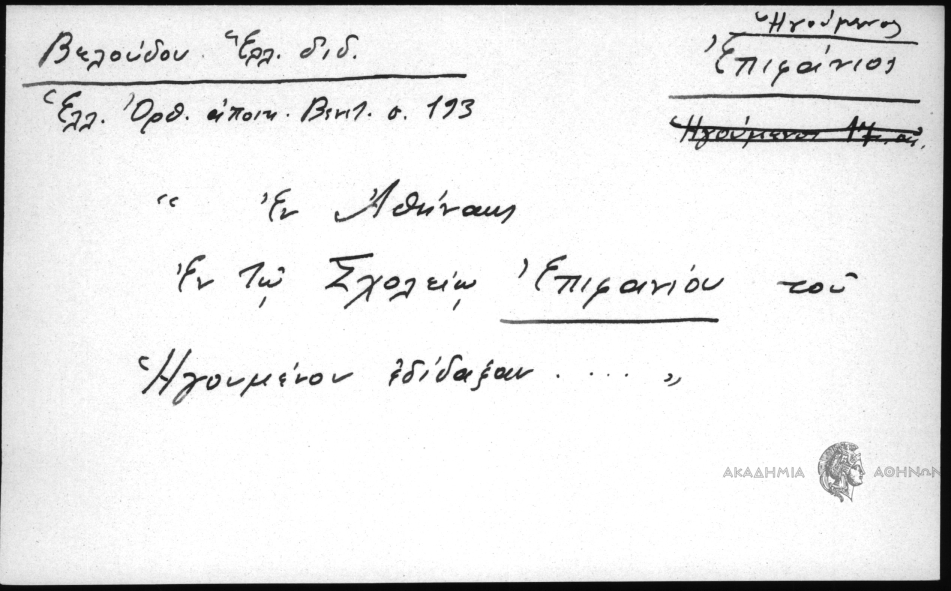 Βελούδου Ἑλλ. διδ.
Ἑλλ. Ὀρθ. ἀποικ. Βενετ. σ. 193
Ἡγούμενος
Ἐπιφάνιος
Ἡγούμενος
“ Ἐν Ἀθήναις
Ἐν τῷ Σχολείῳ Ἐπιφανίου τοῦ
Ἡγουμένου ἐδίδαξαν . . . . „
ΑΚΑΔΗΜΙΑ ΑΘΗΝΩΝ